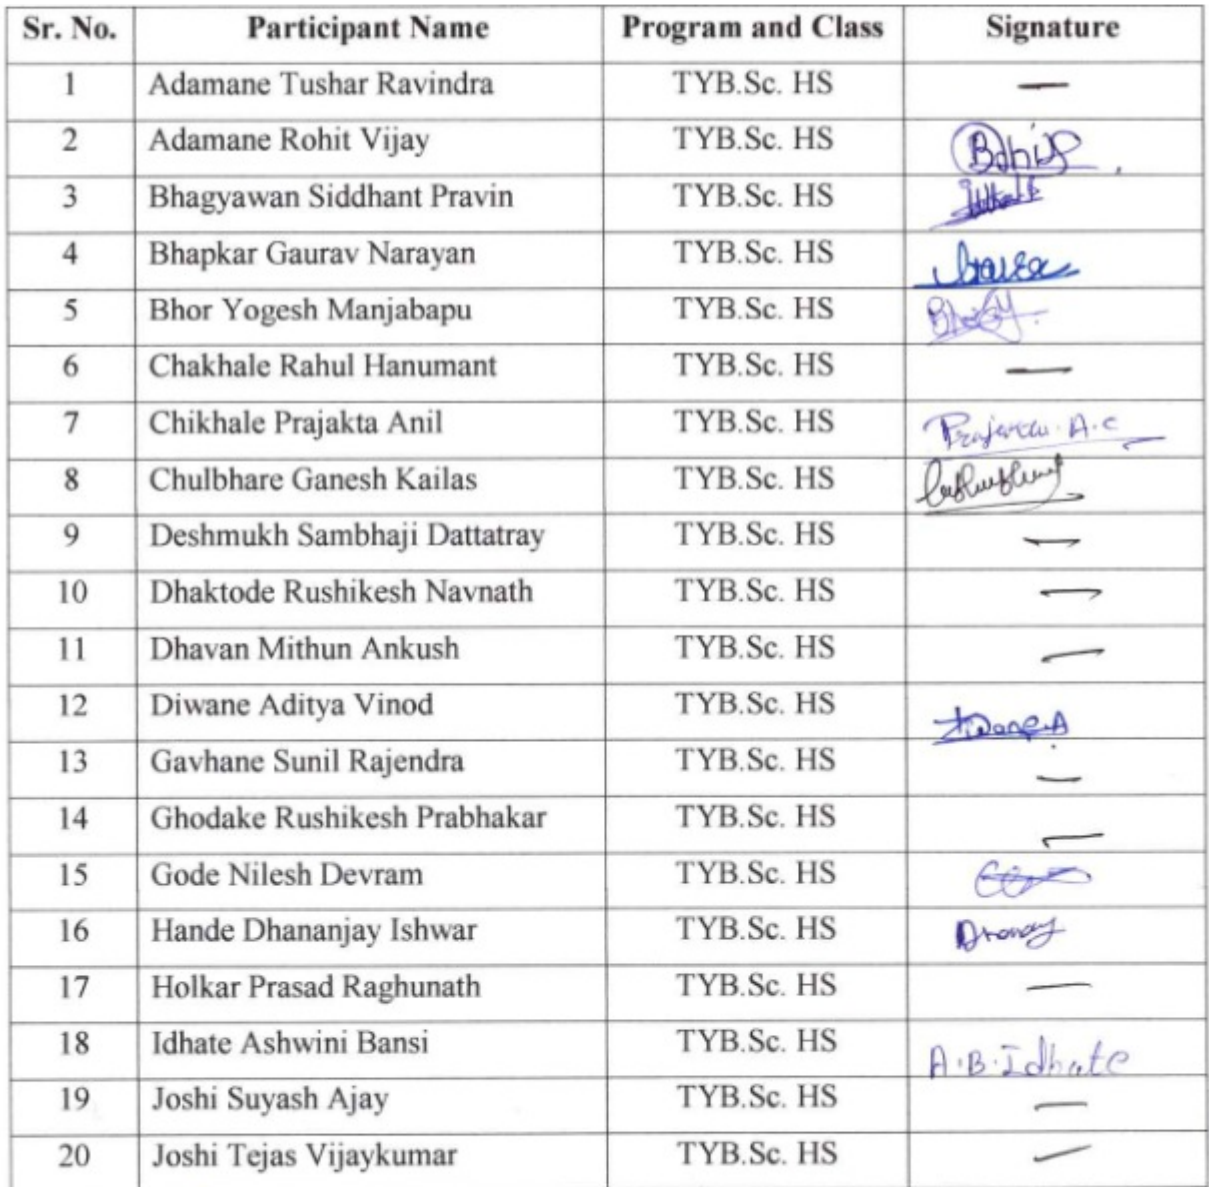 Sr. No. Participant Name Program and Class Signature
1 Adamane Tushar Ravindra TYB.Sc. HS —
2 Adamane Rohit Vijay TYB.Sc. HS
3 Bhagyawan Siddhant Pravin TYB.Sc. HS
4 Bhapkar Gaurav Narayan TYB.Sc. HS
5 Bhor Yogesh Manjabapu TYB.Sc. HS
6 Chakhale Rahul Hanumant TYB.Sc. HS —
7 Chikhale Prajakta Anil TYB.Sc. HS A.C
8 Chulbhare Ganesh Kailas TYB.Sc. HS
9 Deshmukh Sambhaji Dattatray TYB.Sc. HS —
10 Dhaktode Rushikesh Navnath TYB.Sc. HS —
11 Dhavan Mithun Ankush TYB.Sc. HS —
12 Diwane Aditya Vinod TYB.Sc. HS
13 Gavhane Sunil Rajendra TYB.Sc. HS —
14 Ghodake Rushikesh Prabhakar TYB.Sc. HS —
15 Gode Nilesh Devram TYB.Sc. HS
16 Hande Dhananjay Ishwar TYB.Sc. HS
17 Holkar Prasad Raghunath TYB.Sc. HS —
18 Idhate Ashwini Bansi TYB.Sc. HS A.B.Idhate
19 Joshi Suyash Ajay TYB.Sc. HS —
20 Joshi Tejas Vijaykumar TYB.Sc. HS —